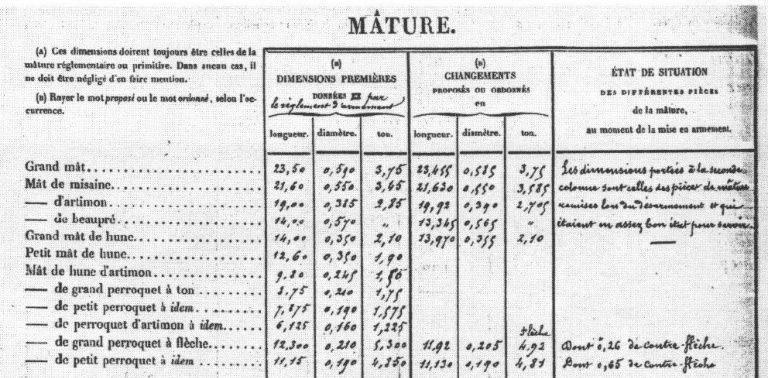 MÂTURE.
(A) Ces dimensions doivent toujours être celles de la
mâture réglementaire ou primitive. Dans aucun cas, il
ne doit être négligé d'en faire mention.
(B) Rayer le mot proposé ou le mot ordonné, selon l'oc-
currence.
(B)
DIMENSIONS PREMIÈRES
DONNÉES par
le règlement d'armement
longueur. diamètre. ton.
(B)
CHANGEMENTS
PROPOSÉS OU ORDONNÉS
en
longueur. diamètre. ton.
ÉTAT DE SITUATION
DES DIFFÉRENTES PIÈCES
de la mâture,
au moment de la mise en armement.
Grand mât 23,50 0,590 3,75 23,455 0,585 3,75 Les dimensions portées à la seconde
Mât de misaine 21,60 0,550 3,45 21,630 0,550 3,585 colonne sont celles des pièces de mâture
— d'artimon 19,00 0,385 2,85 19,92 0,390 2,705 remises lors du désarmement et qui
— de beaupré 14,00 0,570 „ 13,345 0,565 „ étaient en assez bon état pour servir.
Grand mât de hune 14,00 0,350 2,10 13,970 0,355 2,10
Petit mât de hune 12,60 0,350 1,90
Mât de hune d'artimon 9,80 0,245
— de grand perroquet à ton 8,75 0,210 1,75
— de petit perroquet à idem 7,875 0,190 1,575
— de perroquet d'artimon à idem 6,125 0,160 1,225
flèche
— de grand perroquet à flèche 12,300 0,210 5,300 11,92 0,205 4,92 Dont 0,26 de contre-flèche.
— de petit perroquet à idem 11,15 0,190 4,850 11,130 0,190 4,81 Dont 0,65 de contre-flèche